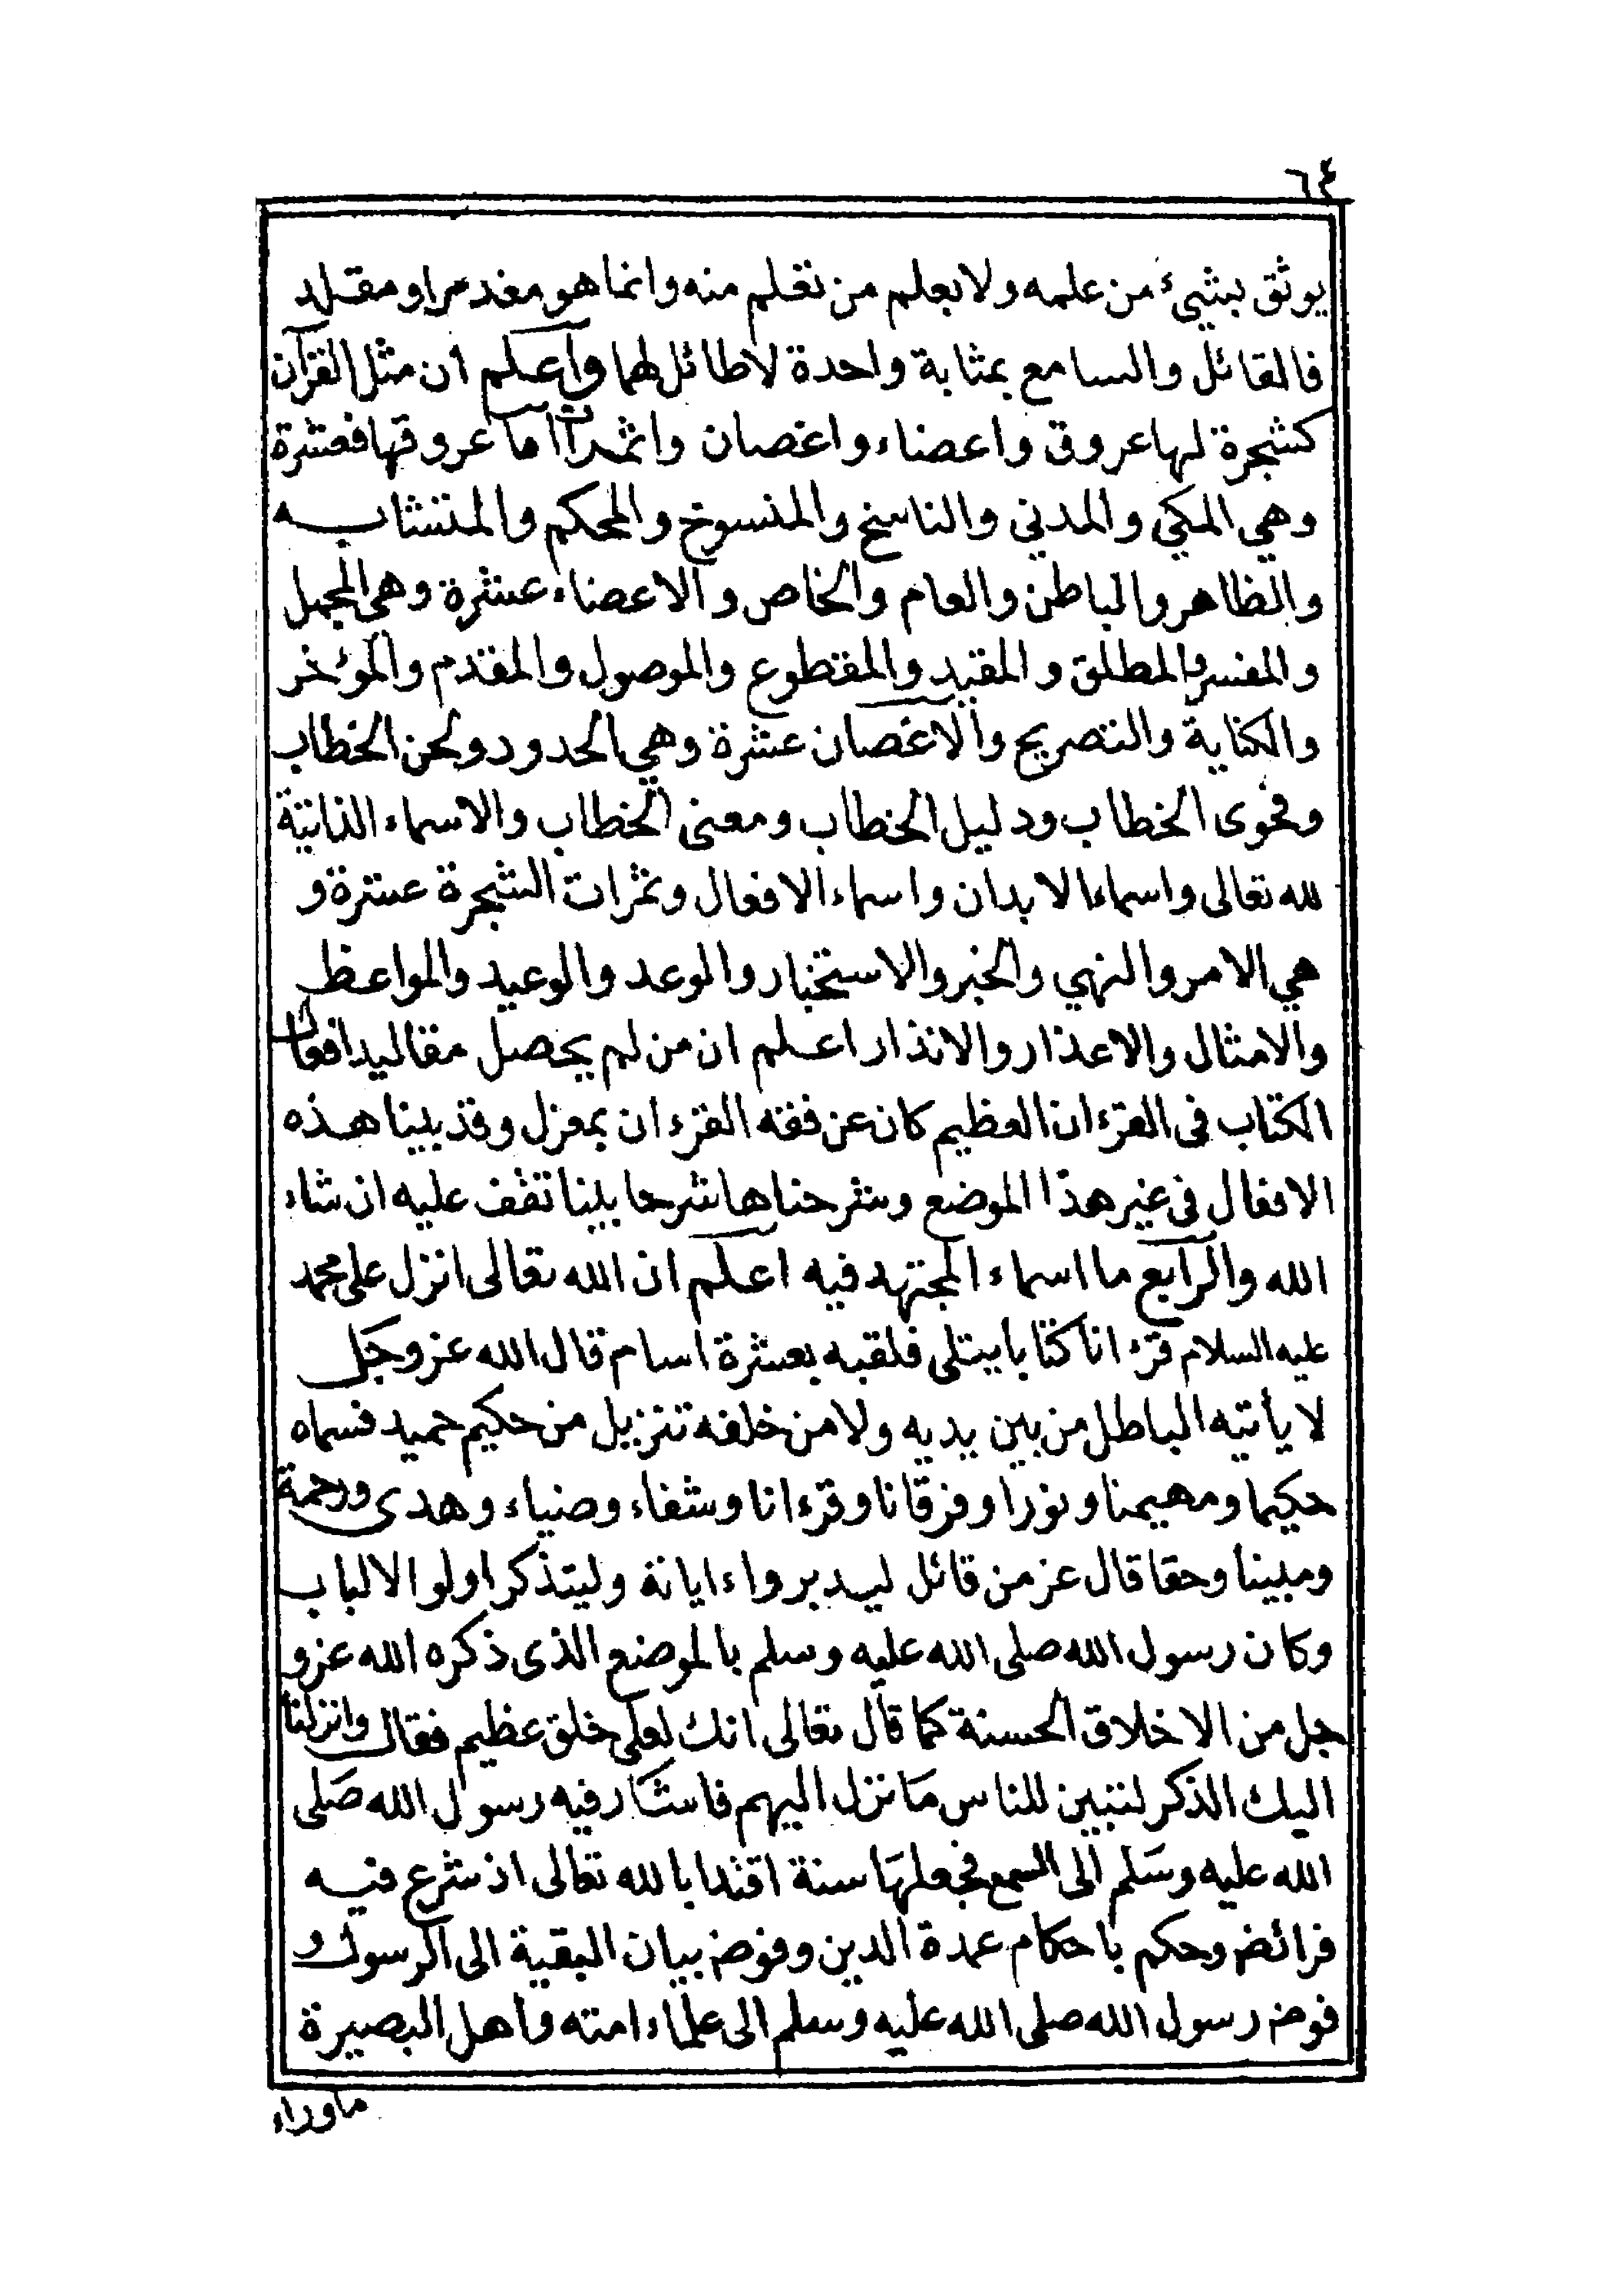 ٦٤
يوثق بشيء من علمه ولا يعلم من تعلم منه وانما هو مغدمر او مقلد
فالقائل والسامع بمثابة واحدة لا طائل لهما واعلم ان مثل القرآن
كشجرة لها عروق واعضاء واغصان واثمرات اما عروقها فعشرة
وهي المكي والمدني والناسخ والمنسوخ والمحكم والمتشابه
والظاهر والباطن والعام والخاص والاعضاء عشرة وهى المجمل
والمفسر والمطلق والمقيد والمقطوع والموصول والمقدم والمؤخر
والكناية والتصريح والاغصان عشرة وهي الحدود ولحن الخطاب
وفحوى الخطاب ودليل الخطاب ومعنى الخطاب والاسماء الذاتية
لله تعالى واسماء الابدان واسماء الافعال وثمرات الشجرة عشرة و
هي الامر والنهي والخبر والاستخبار والوعد والوعيد والمواعظ
والامثال والاعذار والانذار اعلم ان من لم يحصل مقاليد اقفال
الكتاب فى القرءان العظيم كان عن فقه القرءان بمعزل وقد بينا هذه
الاقفال فى غير هذا الموضع وشرحناها شرحا بينا تقف عليه ان شاء
الله والرابع ما اسماء المجتهد فيه اعلم ان الله تعالى انزل على محمد
عليه السلام قرءانا كتابا يتلى فلقبه بعشرة اسام قال الله عز وجل
لا يأتيه الباطل من بين يديه ولا من خلفه تنزيل من حكيم حميد فسماه
حكيما ومهيمنا ونورا وفرقانا وقرءانا وشفاء وضياء وهدى ورحمة
ومبينا وحقا قال عز من قائل ليدبروا ءاياته وليتذكر اولو الالباب
وكان رسول الله صلى الله عليه وسلم بالموضع الذى ذكره الله عز و
جل من الاخلاق الحسنة كما قال تعالى انك لعلى خلق عظيم فقال وانزلنا
اليك الذكر لتبين للناس ما نزل اليهم فاشار فيه رسول الله صلى
الله عليه وسلم الى السمع فجعلها سنة اقتدا بالله تعالى اذ شرع فيه
فرائض وحكم باحكام عمدة الدين وفوض بيان البقية الى الرسول و
فوض رسول الله صلى الله عليه وسلم الى علماء امته واهل البصيرة
ما وراء